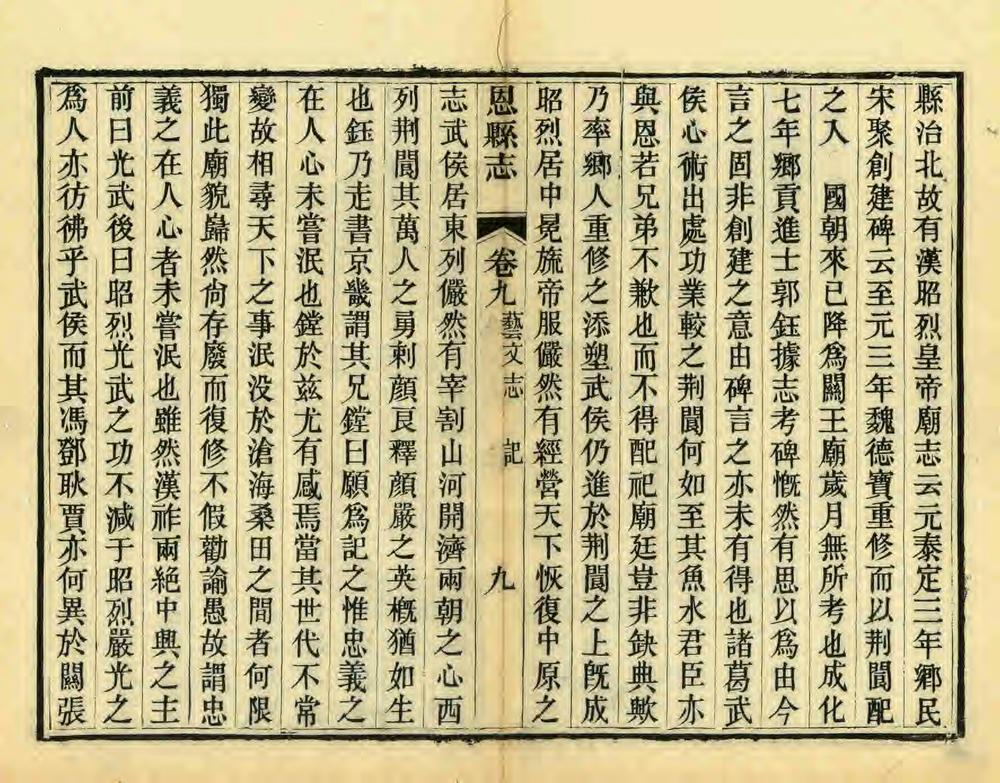 縣治北故有漢昭烈皇帝廟志云元泰定三年鄉民
宋聚創建碑云至元三年魏德寶重修而以荆閬配
之入　國朝來已降爲關王廟歲月無所考也成化
七年鄉貢進士郭鈺據志考碑慨然有思以爲由今
言之固非創建之意由碑言之亦未有得也諸葛武
侯心術出處功業較之荆閬何如至其魚水君臣亦
與恩若兄弟不歉也而不得配祀廟廷豈非缺典歟
乃率鄉人重修之添塑武侯仍進於荆閬之上旣成
昭烈居中冕旒帝服儼然有經營天下恢復中原之
恩縣志　卷九　藝文志　記　九
志武侯居東列儼然有宰割山河開濟兩朝之心西
列荆閬其萬人之勇刺顔良釋顔嚴之英槪猶如生
也鈺乃走書京畿謂其兄鏜曰願爲記之惟忠義之
在人心未嘗泯也鏜於茲尤有感焉當其世代不常
變故相尋天下之事泯没於滄海桑田之間者何限
獨此廟貌巋然尙存廢而復修不假勸諭愚故謂忠
義之在人心者未嘗泯也雖然漢祚兩絶中興之主
前曰光武後曰昭烈光武之功不減于昭烈嚴光之
爲人亦彷彿乎武侯而其馮鄧耿賈亦何異於關張